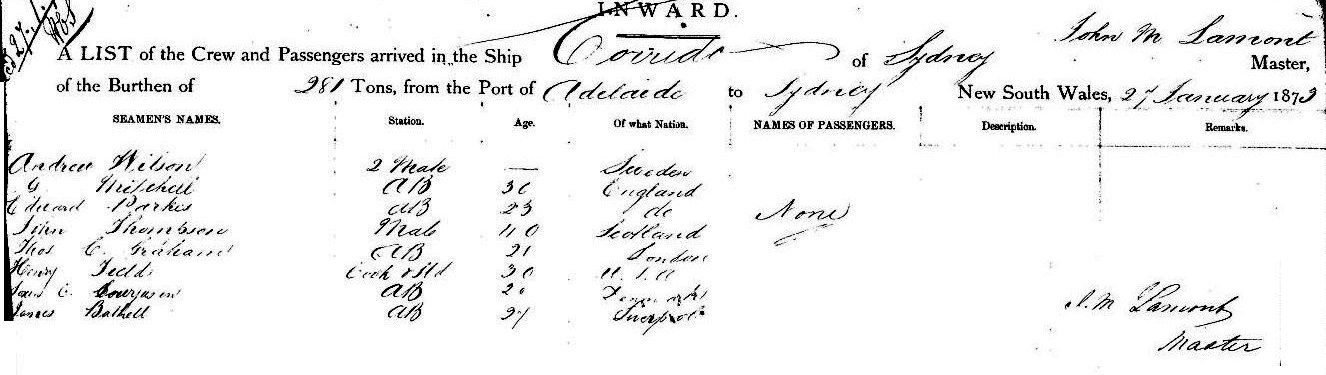 INWARD.
A LIST of the Crew and Passengers arrived in the Ship of Sydney John M Lamont Master,
of the Burthen of 281 Tons, from the Port of Adelaide to Sydney New South Wales, 27 January 1873
SEAMEN'S NAMES. Station. Age. Of what Nation. NAMES OF PASSENGERS. Description. Remarks.
Andrew Wilson 2 Mate — Sweden
G Mitchell AB 30 England
Edward Parkes AB 23 do None
John Thompson Mate 40 Scotland
Thos C. Graham AB 21 London
Henry Cook & Std 30 U.S.A
C. AB
James AB 27 Liverpool
J. M Lamont
Master